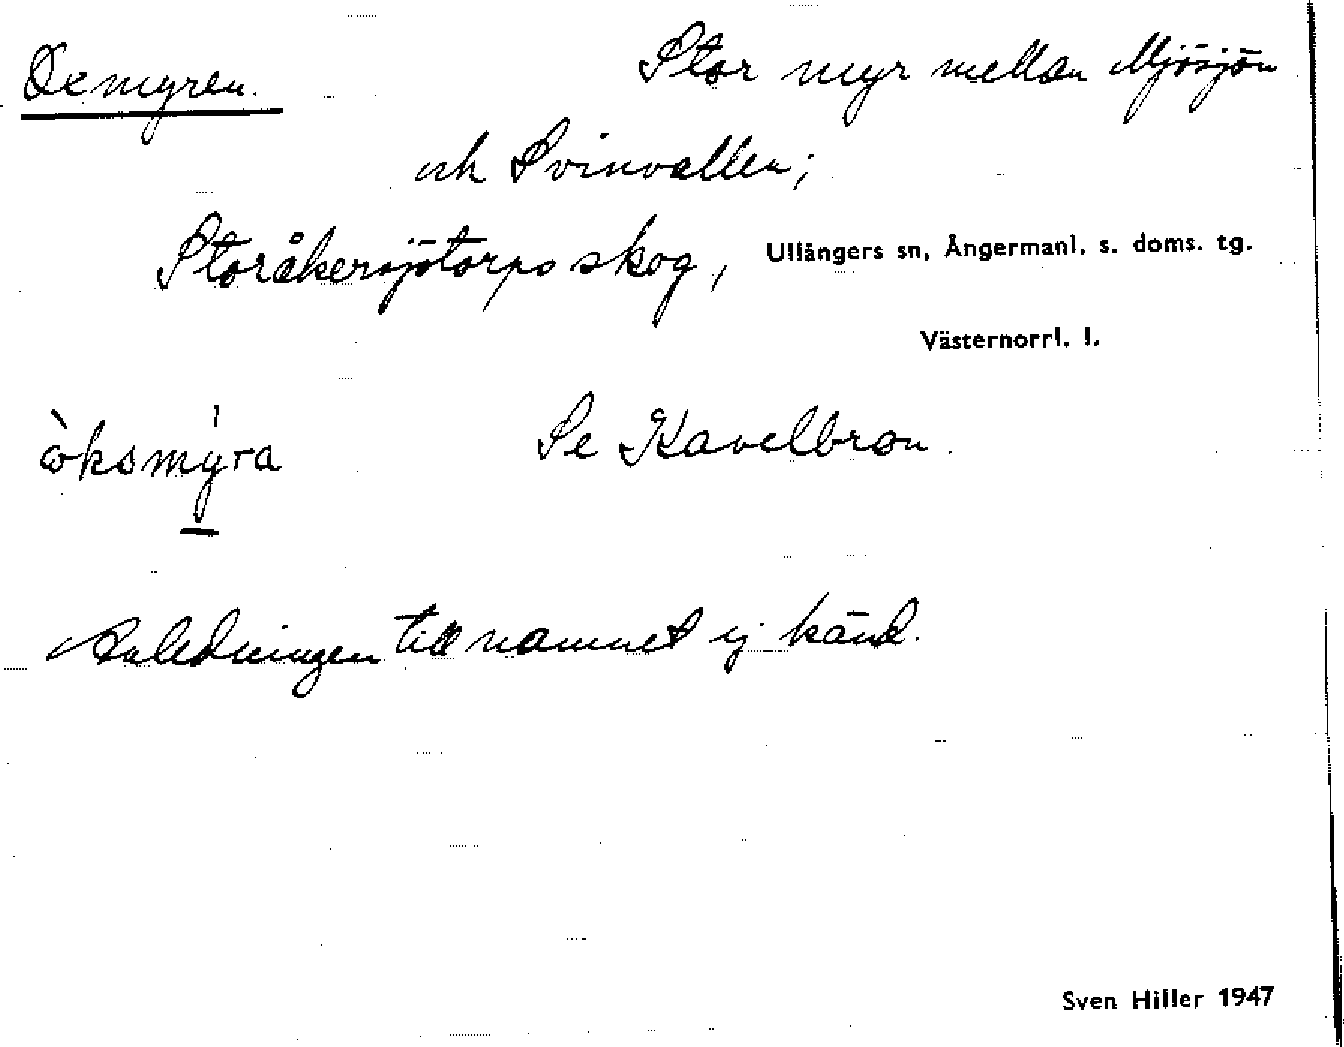 Oxmyren.
Stor myr mellan Mjösjön
och Svinvallen;
Storåkersjötorps skog, Ullångers sn, Ångermanl. s. doms. tg.
Västernorrl. l.
Se Kavelbron.
Anledningen till namnet ej känd.
Sven Hiller 1947